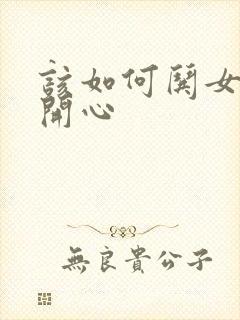 該如何鬨女
開心
無良貴公子